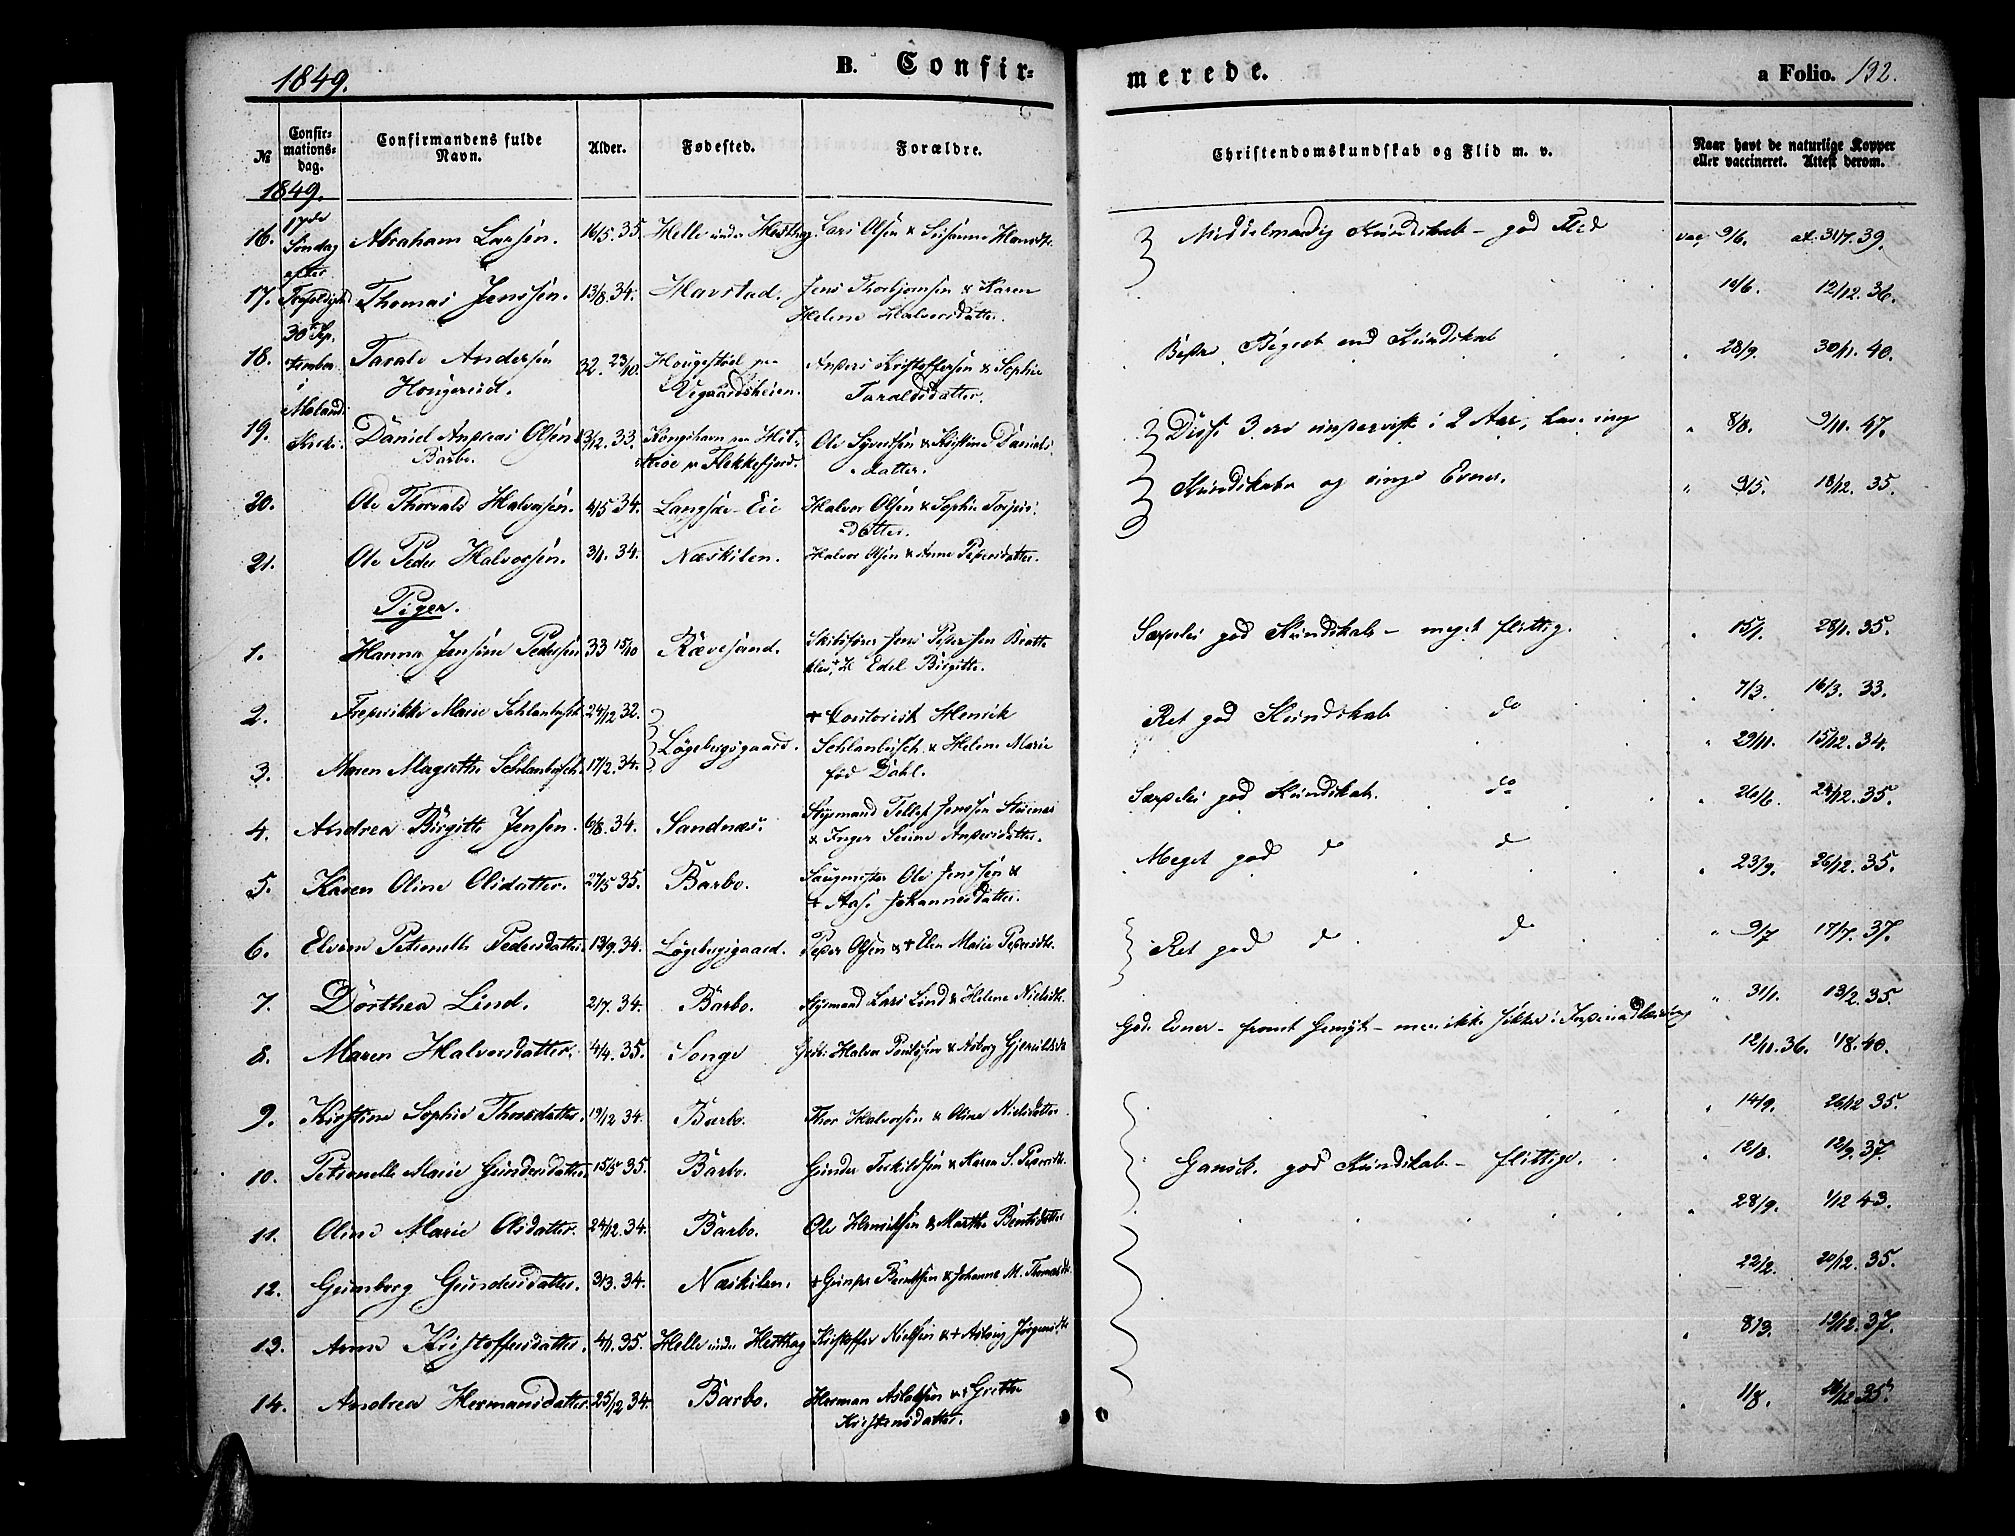 1849.
B. Confir=
merede.
a Folio. 132.
№
Confir=
mations=
dag.
Confirmandens fulde
Navn.
Alder.
Fødested.
Forældre.
Christendomskundskab og Flid m. v.
Naar havt de naturlige Kopper
eller vaccineret. Attest derom.
1849.
17de
Søndag
efter
30te Sep.
tember
i
16. Abraham Larsen. 16/5. 35. Helle under Hesthag. Lars Olsen & Susanne Hansdtr. Middelmaadig Kundskab - god Flid vac. 9/6. at. 31/7. 39.
17. Thomas Jenssen. 13/8. 34. Havstad. Jens Thorbjørnsen & Karen
Helene Halvorsdatter. 10/6. 12/12. 36.
18. Tarald Andersen
Hougerud. 32. 23/10. Anders Kristoffersen & Sophie
Taraldsdatter. Bedre Begreb end Kundskab 28/9. 30/11. 40.
Vegaardsheien.
19. Daniel Andreas Olsen
Barbo. 13/12. 33. Kongshavn paa Hit-
terøe v. Flekkefjord. Ole Syvertsen & Kristine Daniels
datter. Disse 3 ere underviste i 2 Aar, have ringe 8/8. 9/11. 47.
20. Ole Thorvald Halvorsen. 4/5 34. Langsæ-Eie Halvor Olsen & Sophie Torjus-
datter. Kundskaber og ringe Evner. 9/5. 18/12. 35.
21. Ole Peder Halvorsen. 3/1. 34. Næskilen. Halvor Olsen & Anne Pedersdatter.
Piger.
1. Hanna Jensine Pedersen 33 15/10 Rævesand. Skibsfører Jens Pedersen Bratte
klev & H. Edel Birgitte. Særdeles god Kundskab - meget flittig. 15/1. 28/1. 35.
2. Frederikke Marie Schlanbusch 24/12 32. + Contorist Henrik Ret god Kundskab do 7/3. 16/3. 33.
3. Maren Magrethe Schlanbusch. 17/2. 34. Løgebergsgaard. Schlanbusch & Helene Marie
fød Dahl. 29/11. 15/12. 34.
4. Andrea Birgitte Jensen. 6/8. 34. Sandnæs. Styrmand Tellef Jenssen
& Inger Serine Andersdatter. Særdeles god Kundskab. do 26/6. 24/12. 35.
5. Karen Oline Olsdatter. 27/5 35. Barbo. Saugmester Ole Jenssen &
+ Aase Johannesdatter. Meget god do do 23/9. 26/12. 35.
6. Elvine Petronelle Pedersdatter. 13/9. 34. Løgebergsgaard. Peder Olsen & + Elen Marie Pedersdtr. Ret god do do 9/7 17/7. 37.
7. Dorthea Lind. 2/7. 34. Barbo. Styrmand Lars Lind & Helene Nielsdtr. 31/1. 13/2. 35.
8. Maren Halvorsdatter. 4/4. 35. Songe Gdbr. Halvor Poulssen & Asborg Gjeruldsdtr Gode Evner - fromt Gemyt - men ikke sikker i Indenadlæsning 12/10. 36. 1/8. 40.
9. Kirstine Sophie Thorsdatter. 19/12 34. Barbo. Thor Halvorsen & Oline Nielsdatter 14/9. 26/12 35.
10. Petronelle Marie Gundersdatter. 15/5 35. Barbo. Gunder Terkildsen & Karen S. Pedersdtr. Ganske god Kundskab - flittige. 12/8. 12/9. 37.
11. Oline Marie Olsdatter. 24/12. 34. Barbo. Ole Henriksen & Marthe Bentsdatter 28/9. 1/12 43.
12. Gunborg Gundersdatter. 3/3. 34. Næskilen. + Gunder Berntsen & Johanne M. Thomasdtr. 22/2. 20/12. 35.
13. Anne Kristoffersdatter. 4/1. 35. Helle under Hesthag Kristoffer Nielsen & + Aslaug Jørgensdtr 8/3. 19/12. 37.
14. Andrea Hermansdatter. 25/12 34. Barbo. Herman Aslaksen & Grethe
Kristensdatter. 1/8. 35.